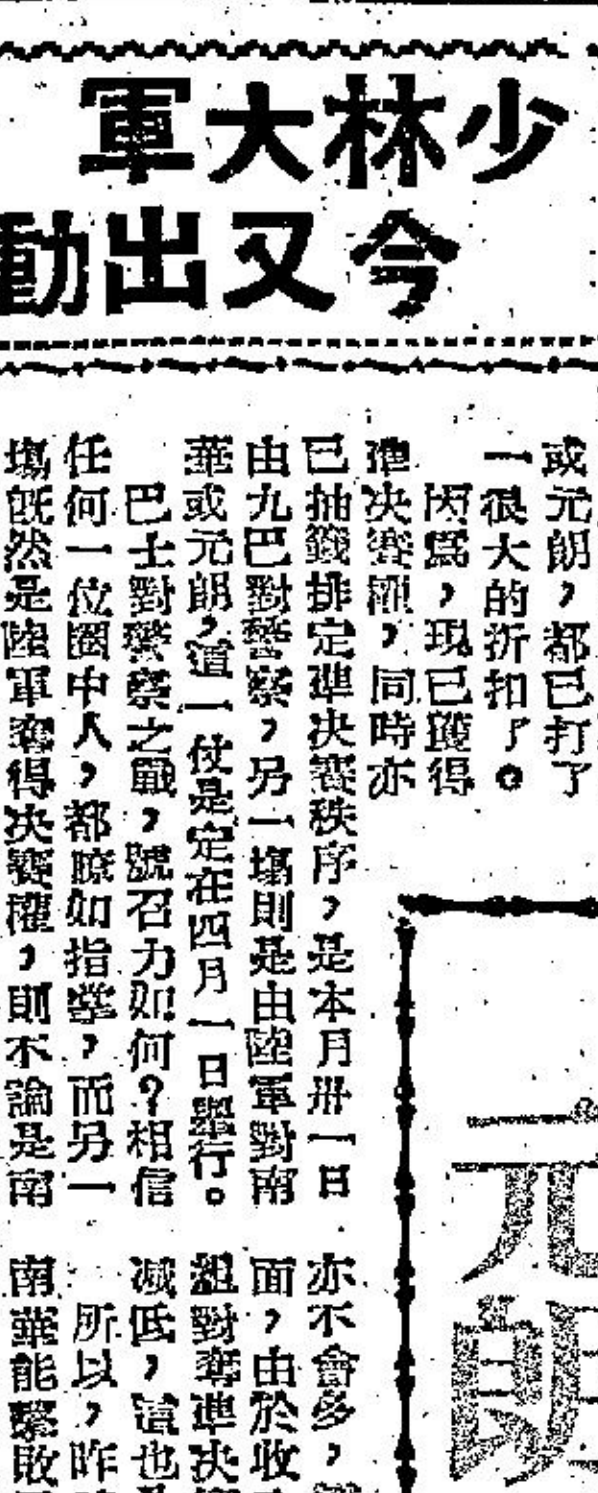 少林大軍
今又出動
或元朗，都已打了
一很大的折扣了。
因爲，現已獲得
準决賽權，同時亦
已抽籤排定準决賽秩序，是本月卅一日
由九巴對警察，另一塲則是由陸軍對南
華或元朗，這一仗是定在四月一日舉行。
巴士對警察之戰，號召力如何？相信
任何一位圈中人，都瞭如指掌，而另一
塲旣然是陸軍奪得决賽權，則不論是南
元朗
亦不會多，
面，由於收
組對奪準决
减低，這也
所以，昨
南華能擊敗